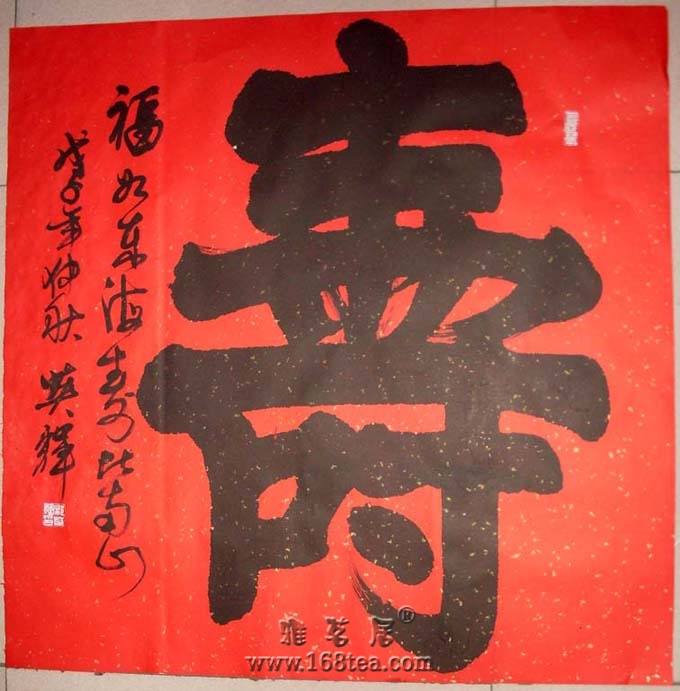 壽
福如东海寿比南山
戊子年仲秋
雅茗居®
www.168tea.com